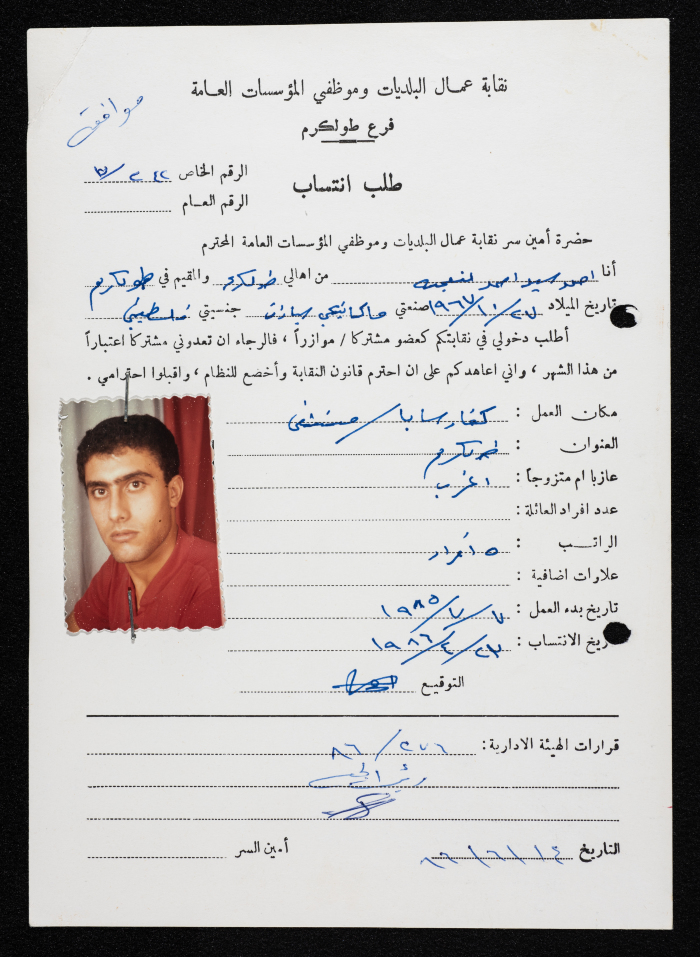 نقابة عمال البلديات وموظفي المؤسسات العامة
موافق
فرع طولكرم
طلب انتساب
الرقم الخاص ٢٤٢ /
الرقم العام
حضرة أمين سر نقابة عمال البلديات وموظفي المؤسسات العامة المحترم
أنا احمد سعيد احمد من اهالي طولكرم والمقيم في طولكرم
تاريخ الميلاد ٢٧/١٠/١٩٦٧ صنعتي ميكانيكي سيارات جنسيتي فلسطيني
أطلب دخولي في نقابتكم كعضو مشتركا / موازراً ، فالرجاء ان تعدوني مشتركا اعتباراً
من هذا الشهر ، واني اعاهدكم على ان احترم قانون النقابة وأخضع للنظام ، واقبلوا احترامي .
مكان العمل : كفار سابا / مستشفى
العنوان : طولكرم
عازبا ام متزوجاً : اعزب
عدد افراد العائلة :
الراتب : ٥ افراد
علاوات اضافية :
تاريخ بدء العمل : ٧/٧/١٩٨٥
تاريخ الانتساب : ٢٣/٤/١٩٨٦
التوقيع
قرارات الهيئة الادارية : ٢٧٦/٨٦
التاريخ ١٤/٦/٨٦ أمين السر